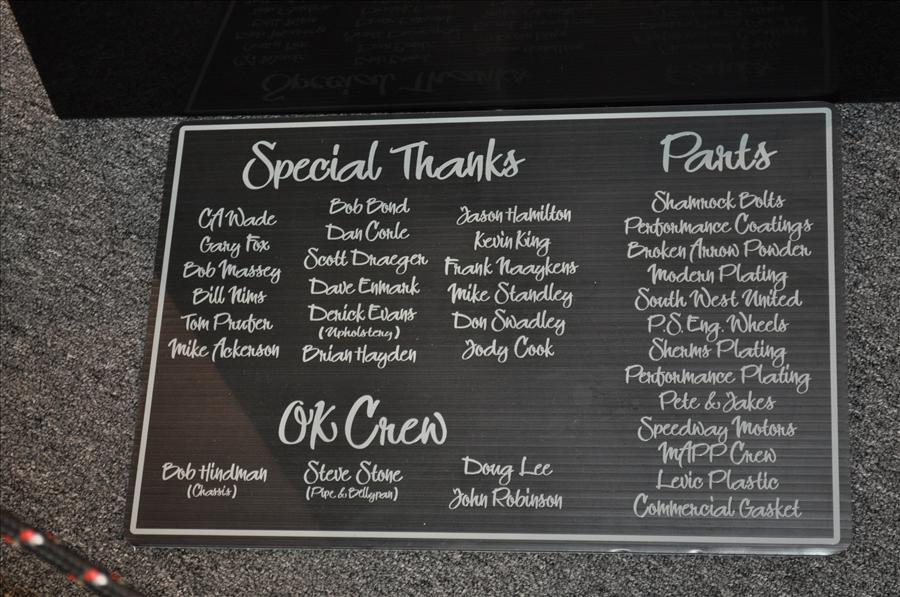 Special Thanks
CA Wade
Gary Fox
Bob Massey
Bill Nims
Tom Prufer
Mike Ackerson
Bob Bond
Dan Corle
Scott Draeger
Dave Enmark
Derick Evans
(Upholstery)
Brian Hayden
Jason Hamilton
Kevin King
Frank Naaykens
Mike Standley
Don Swadley
Jody Cook
OK Crew
Bob Hindman
(Chassis)
Steve Stone
(Pipe & Bellypan)
Doug Lee
John Robinson
Parts
Shamrock Bolts
Performance Coatings
Broken Arrow Powder
Modern Plating
South West United
P.S. Eng. Wheels
Sherms Plating
Performance Plating
Pete & Jakes
Speedway Motors
MAPP Crew
Levic Plastic
Commercial Gasket